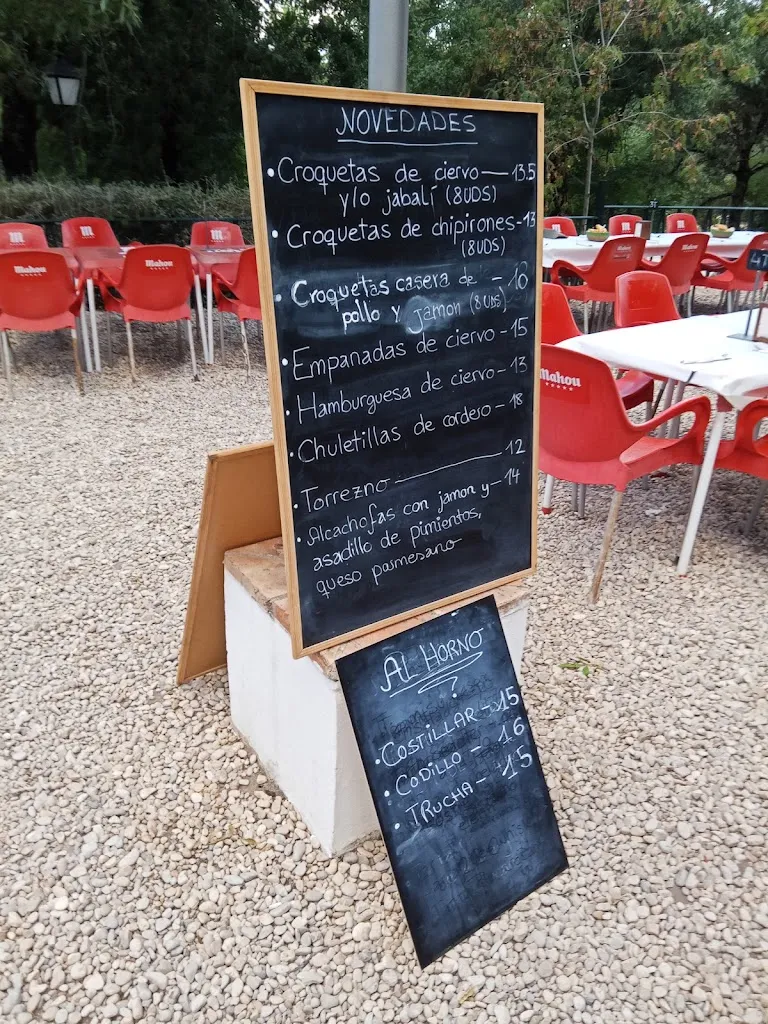 NOVEDADES
• Croquetas de ciervo — 13.5
y/o jabalí (8UDS)
• Croquetas de chipirones - 13
(8UDS)
• Croquetas casera de - 10
pollo y jamon (8uds)
• Empanadas de ciervo - 15
• Hamburguesa de ciervo - 13
• Chuletillas de cordero - 18
• Torrezno — 12
• Alcachofas con jamon y - 14
asadillo de pimientos,
queso parmesano
AL HORNO
• COSTILLAR - 15
• CODILLO - 16
• TRUCHA - 15
Mahou
Mahou
Mahou
47